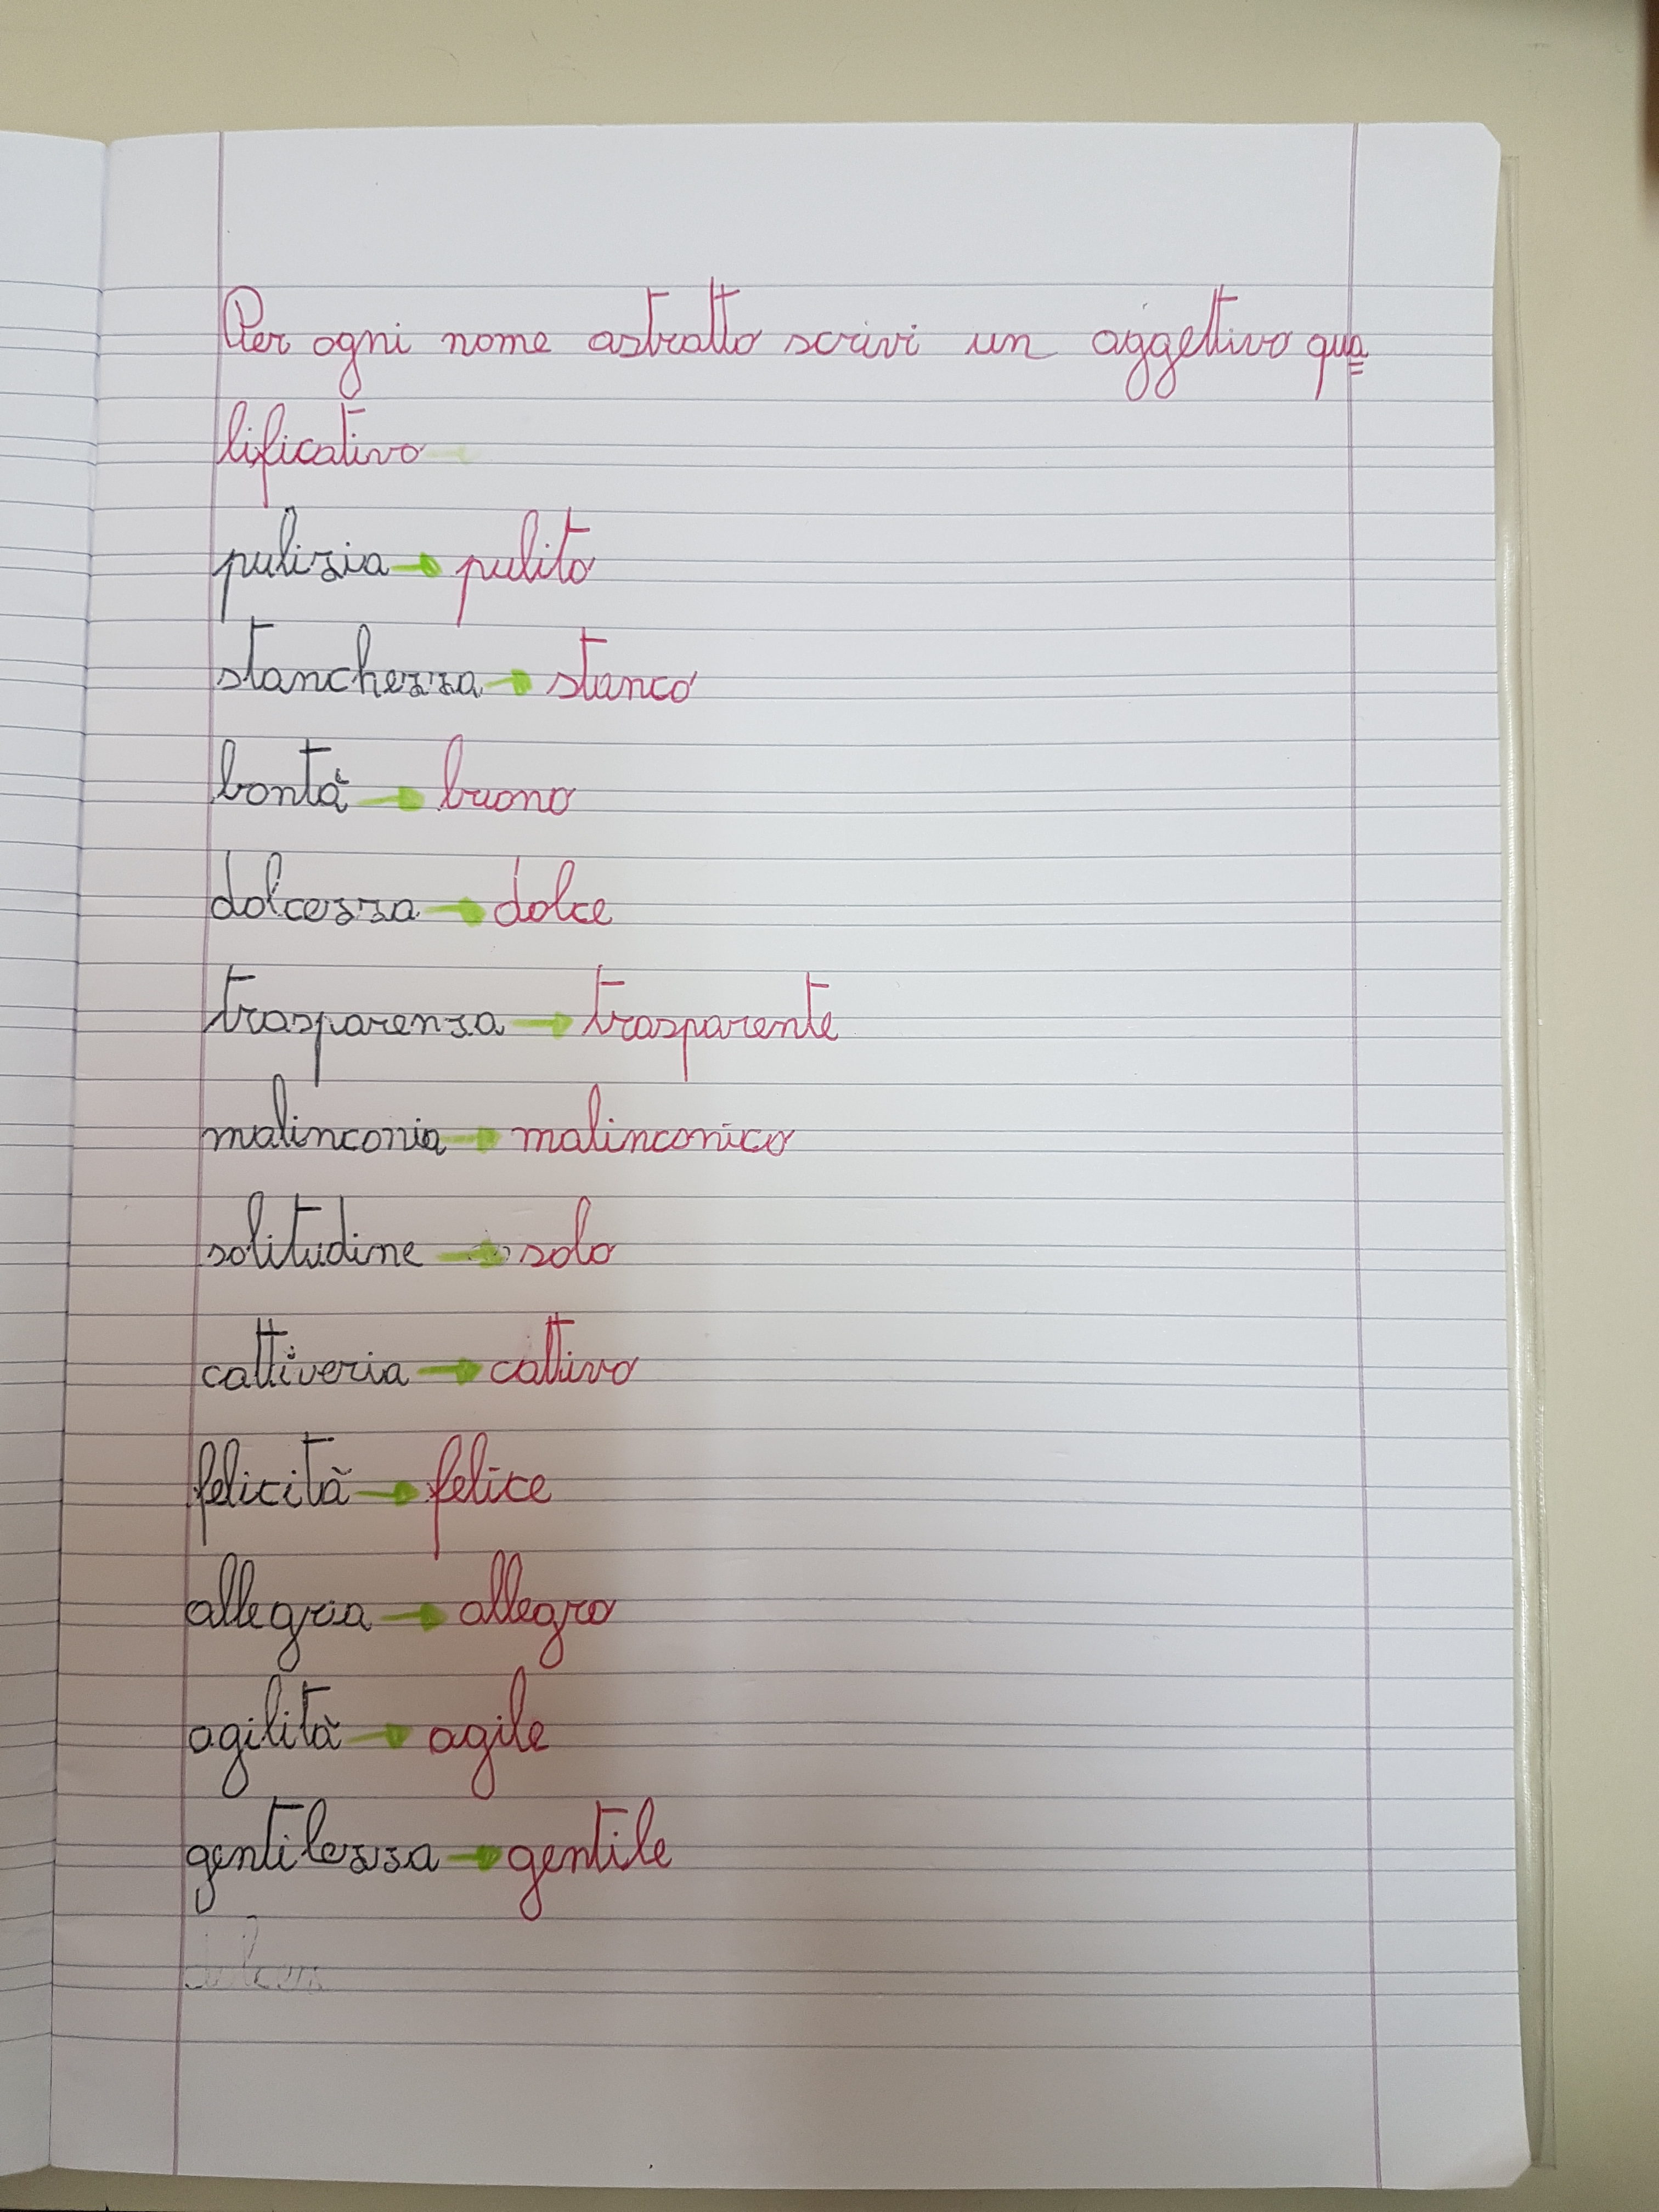 Per ogni nome astratto scrivi un aggettivo qua=
lificativo
pulizia → pulito
stanchezza → stanco
bontà → buono
dolcezza → dolce
trasparenza → trasparente
malinconia → malinconico
solitudine → solo
cattiveria → cattivo
felicità → felice
allegria → allegro
agilità → agile
gentilezza → gentile